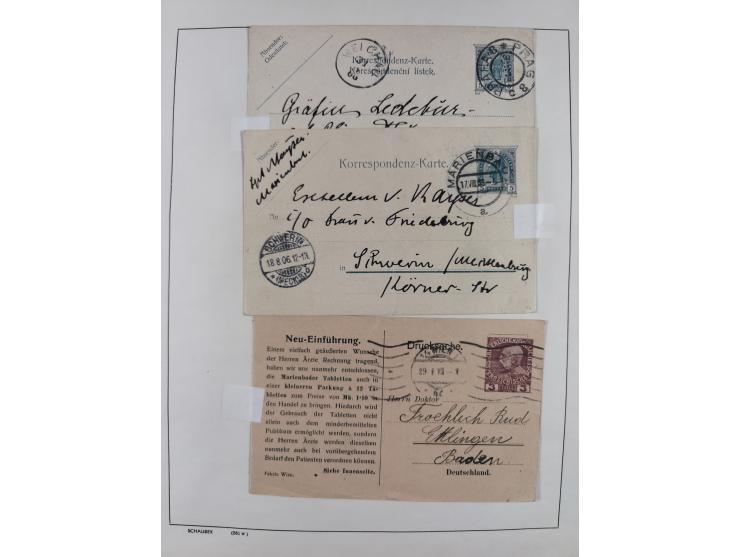 Absender:
Odesílatel:
Korrespondenz-Karte.
Korespondenční lístek.
PRAG 8
PRAHA 8
Gräfin Ledebur
Absender:
Korrespondenz-Karte.
MARIENBAD
17.VIII
a
5
Marienbad.
Excellenz v. Kayser
c/o Frau v. Friedeburg
in
Schwerin / Mecklenburg
Körner-Str
SCHWERIN
18.8.06.12-1
(MECKLB)
Neu-Einführung.
Einem vielfach geäußerten Wunsche
der Herren Ärzte Rechnung tragend,
haben wir uns nunmehr entschlossen,
die Marienbader Tabletten auch in
einer kleineren Packung à 12 Ta-
bletten zum Preise von Mk. 1·10 in
den Handel zu bringen. Hiedurch wird
der Gebrauch der Tabletten nicht
allein auch dem minderbemittelten
Publikum ermöglicht werden, sondern
die Herren Ärzte werden dieselben
nunmehr auch bei vorübergehendem
Bedarf den Patienten verordnen können.
Siehe Innenseite.
Drucksache.
WIEN
3
3
Herrn Doktor
Froehlich Rud
Ettlingen
Baden
Deutschland.
SCHAUBEK